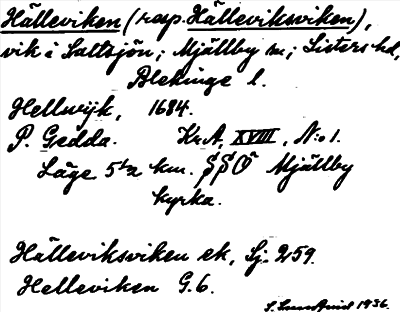 Hälleviken (resp. Hälleviksviken),
vik i Saltsjön; Mjällby sn; Listers hd,
Blekinge l.
Hellwijk, 1684.
P. Gedda. Kr.A. XVIII, N:o 1.
Läge 5½ km. SSO Mjällby
kyrka.
Hälleviksviken ek. Sj. 259.
Helleviken G.6.
1936.